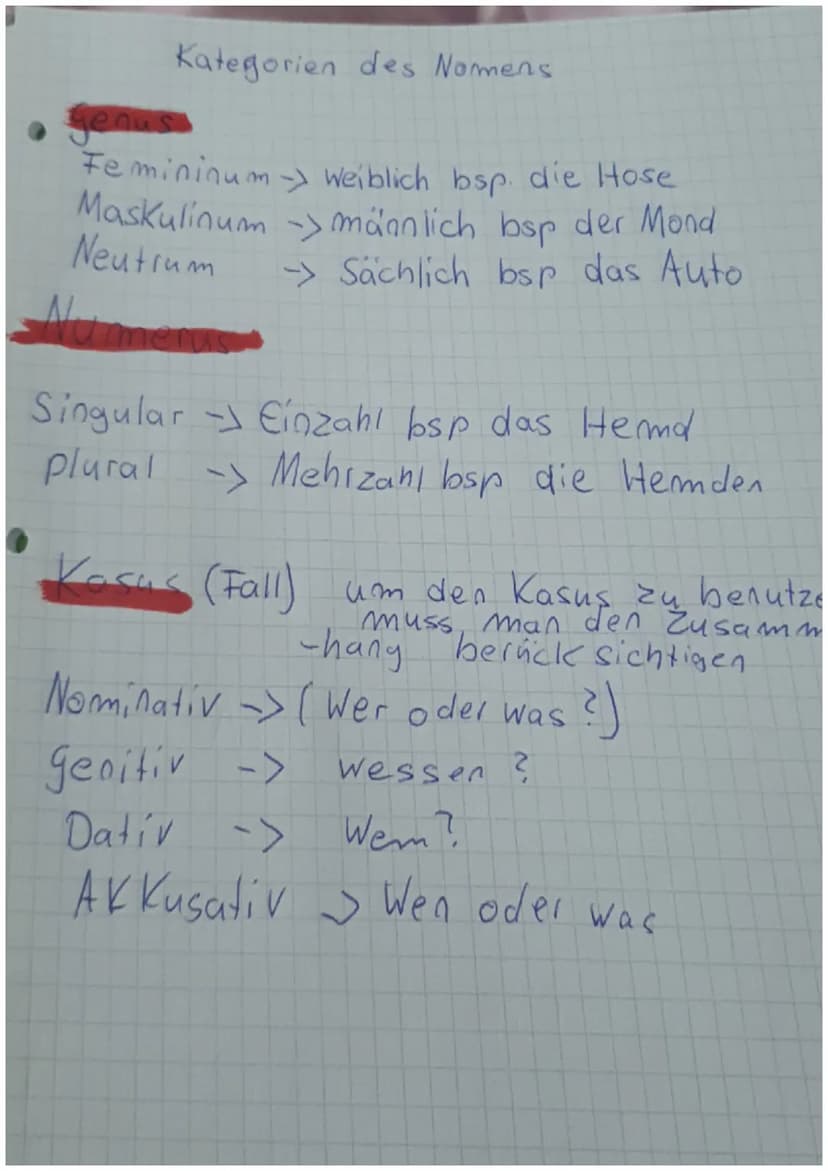 Kategorien des Nomens
genus
Femininum -> weiblich bsp. die Hose
Maskulinum -> männlich bsp der Mond
Neutrum -> Sächlich bsp das Auto
Numerus
Singular -> Einzahl bsp das Hemd
plural -> Mehrzahl bsp die Hemden
Kasus (Fall) um den Kasus zu benutze
muss man den Zusamm
-hang berücksichtigen
Nominativ -> (Wer oder was?)
genitiv -> wessen?
Dativ -> Wem?
Akkusativ -> Wen oder was